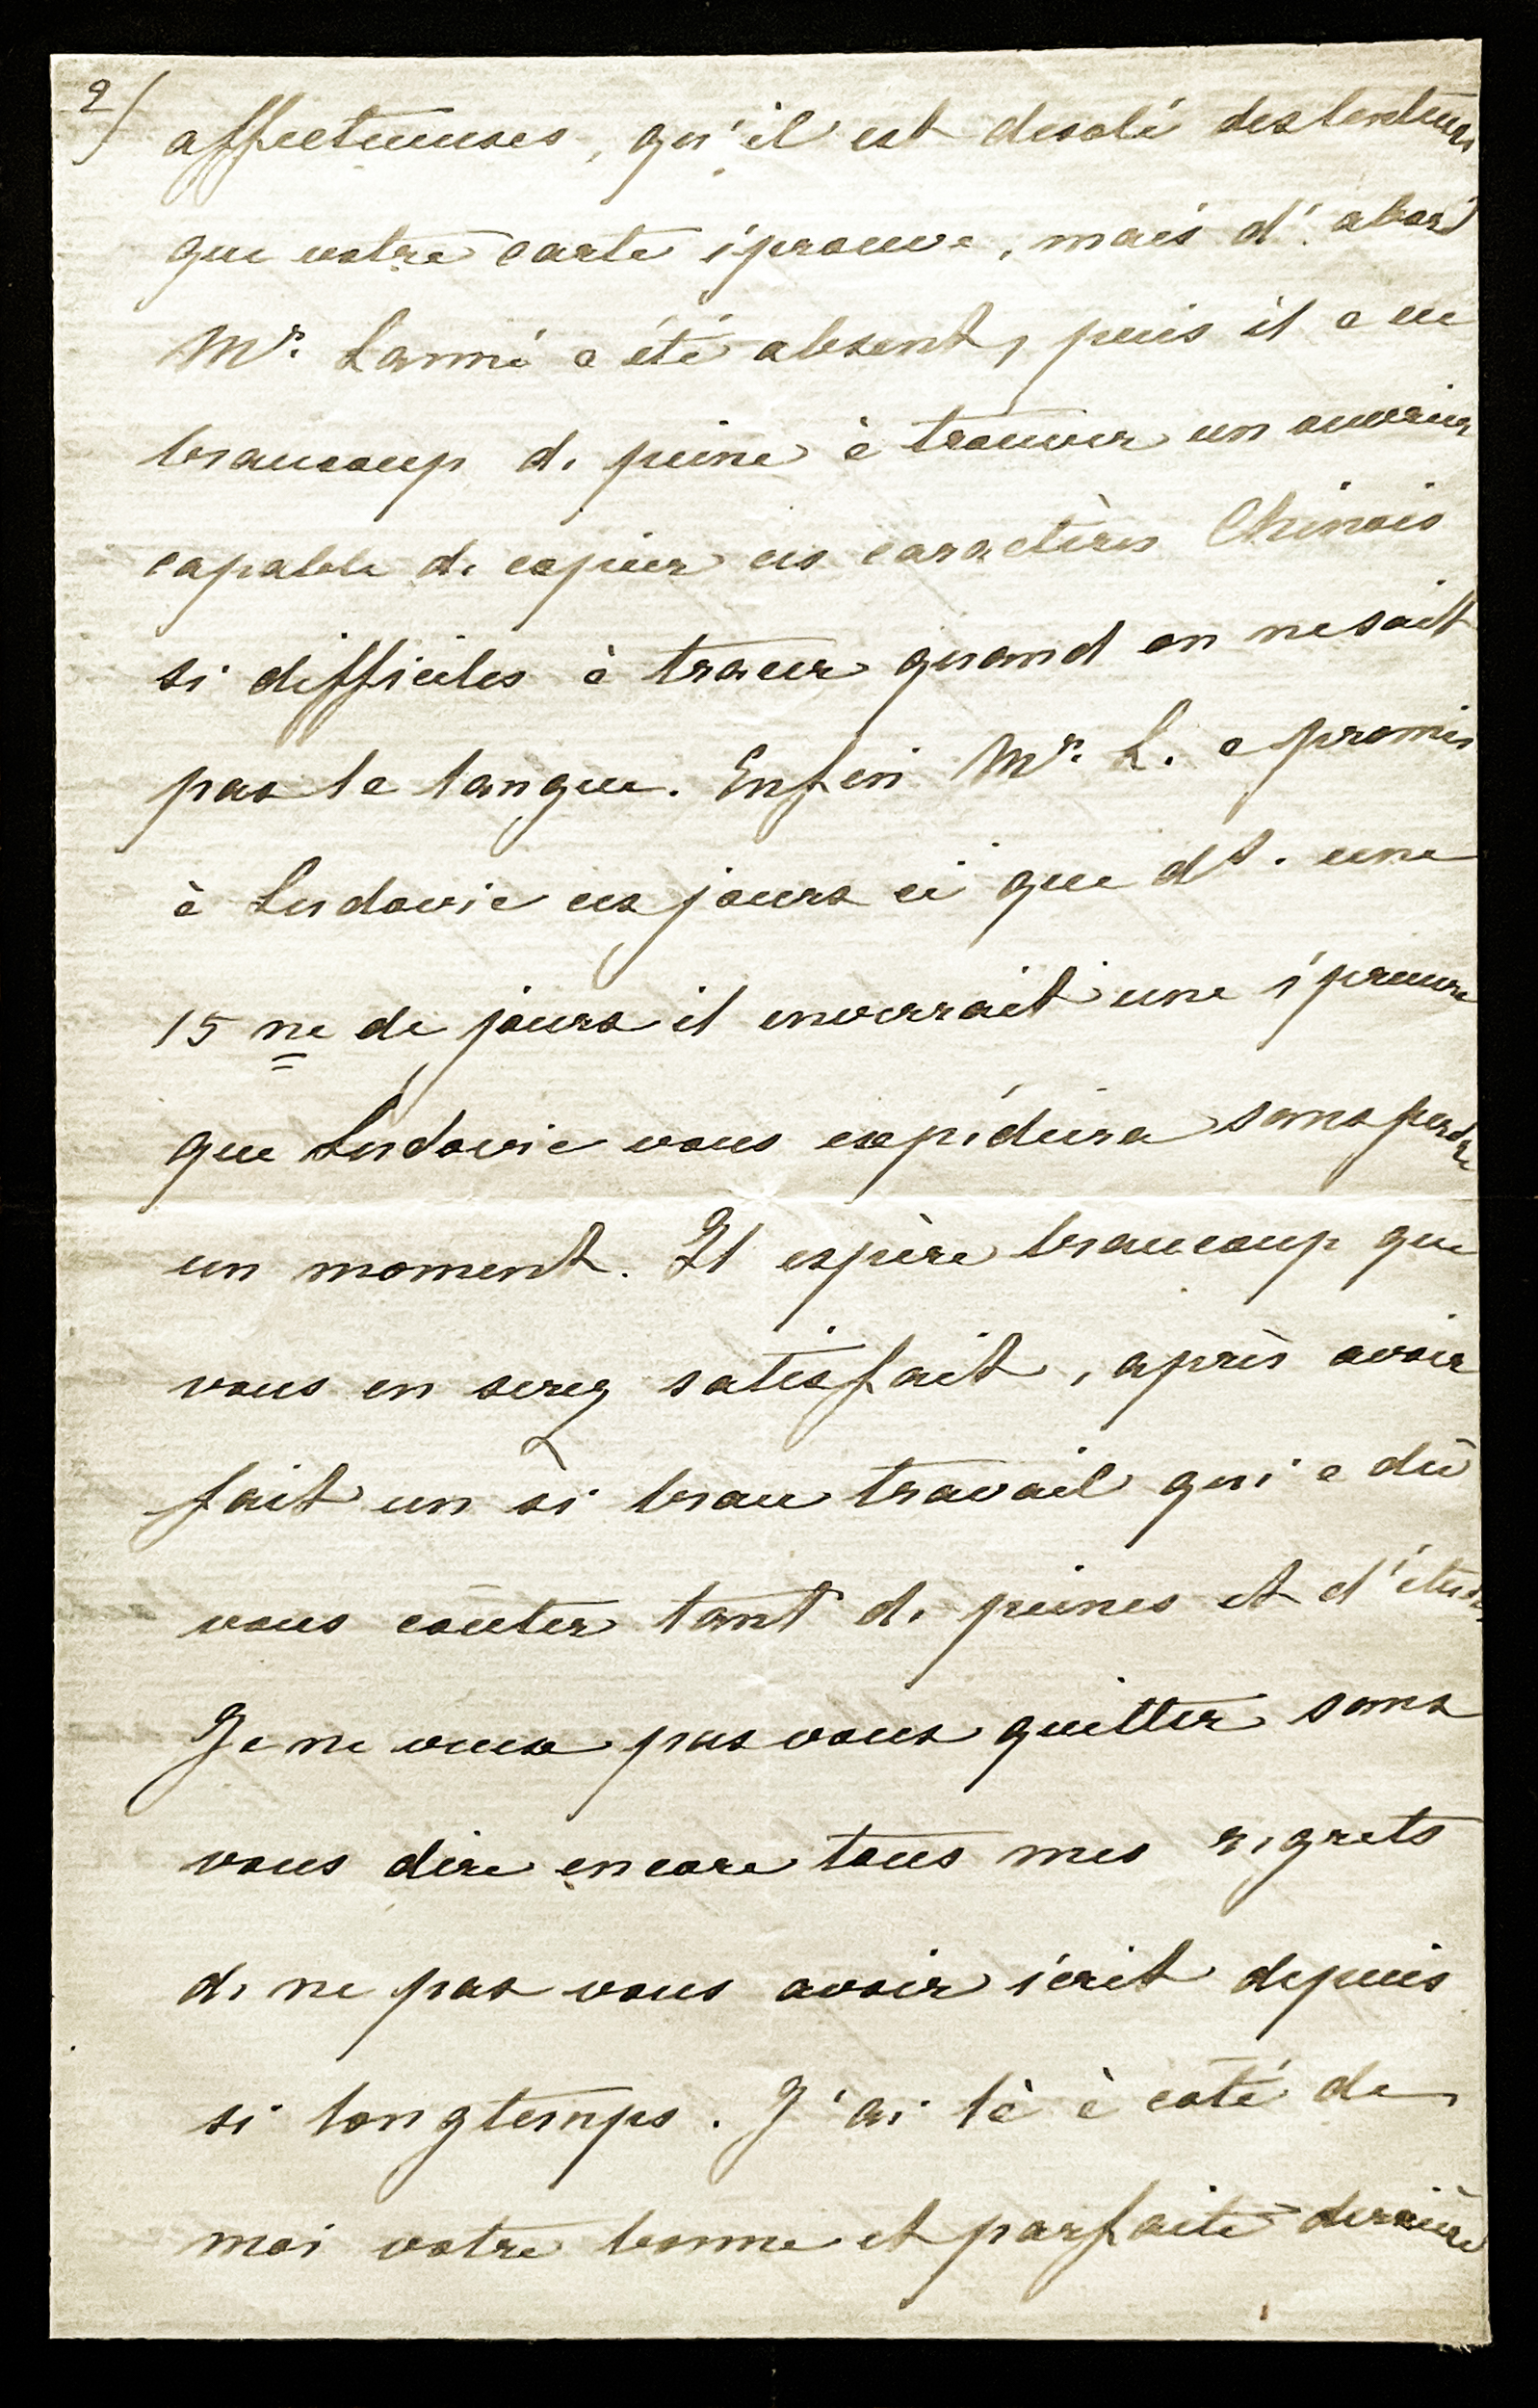 2)
affectueuses, qu'il est desolé des lenteurs
que votre carte éprouve, mais d'abord
Mr. Lanné a été absent, puis il a eu
beaucoup de peine à trouver un ouvrier
capable de copier ces caractères Chinois
si difficiles à tracer quand on ne sait
pas la langue. Enfin Mr. L. a promis
à Ludovic ces jours ci que ds. une
15 ne de jours il enverrait une épreuve
que Ludovic vous expédiera sans perdre
un moment. Il espère beaucoup que
vous en serez satisfait, après avoir
fait un si beau travail qui a dû
vous coûter tant de peines et d'études
Je ne veux pas vous quitter sans
vous dire encore tous mes regrets
de ne pas vous avoir écrit depuis
si longtemps. J'ai là à coté de
moi votre bonne et parfaite dernière